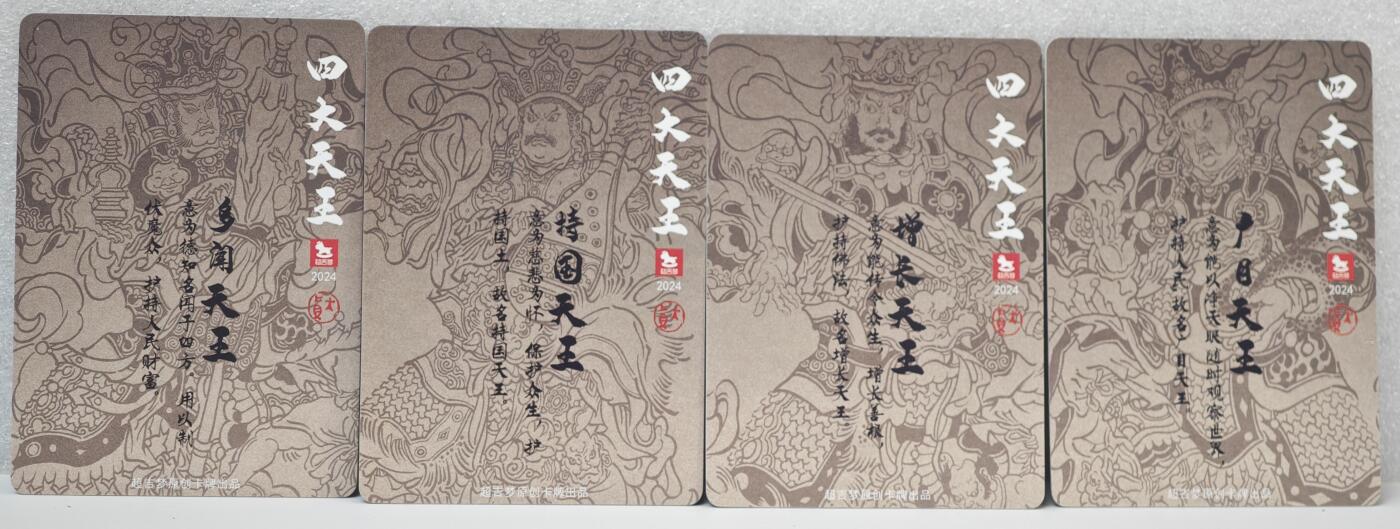 四大天王
超吉梦
2024
多闻天王
意为德知名闻于四方 用以制
伏魔众, 护持人民财富。
超吉梦原创卡牌出品
四大天王
超吉梦
2024
持国天王
意为慈悲为怀, 保护众生, 护
持国土, 故名持国天王。
超吉梦原创卡牌出品
四大天王
超吉梦
2024
增长天王
意为能传令众生, 增长善根,
护持佛法, 故名增长天王。
超吉梦原创卡牌出品
四大天王
超吉梦
2024
广目天王
意为能以净天眼随时观察世界,
护持人民 故名广目天王。
超吉梦原创卡牌出品